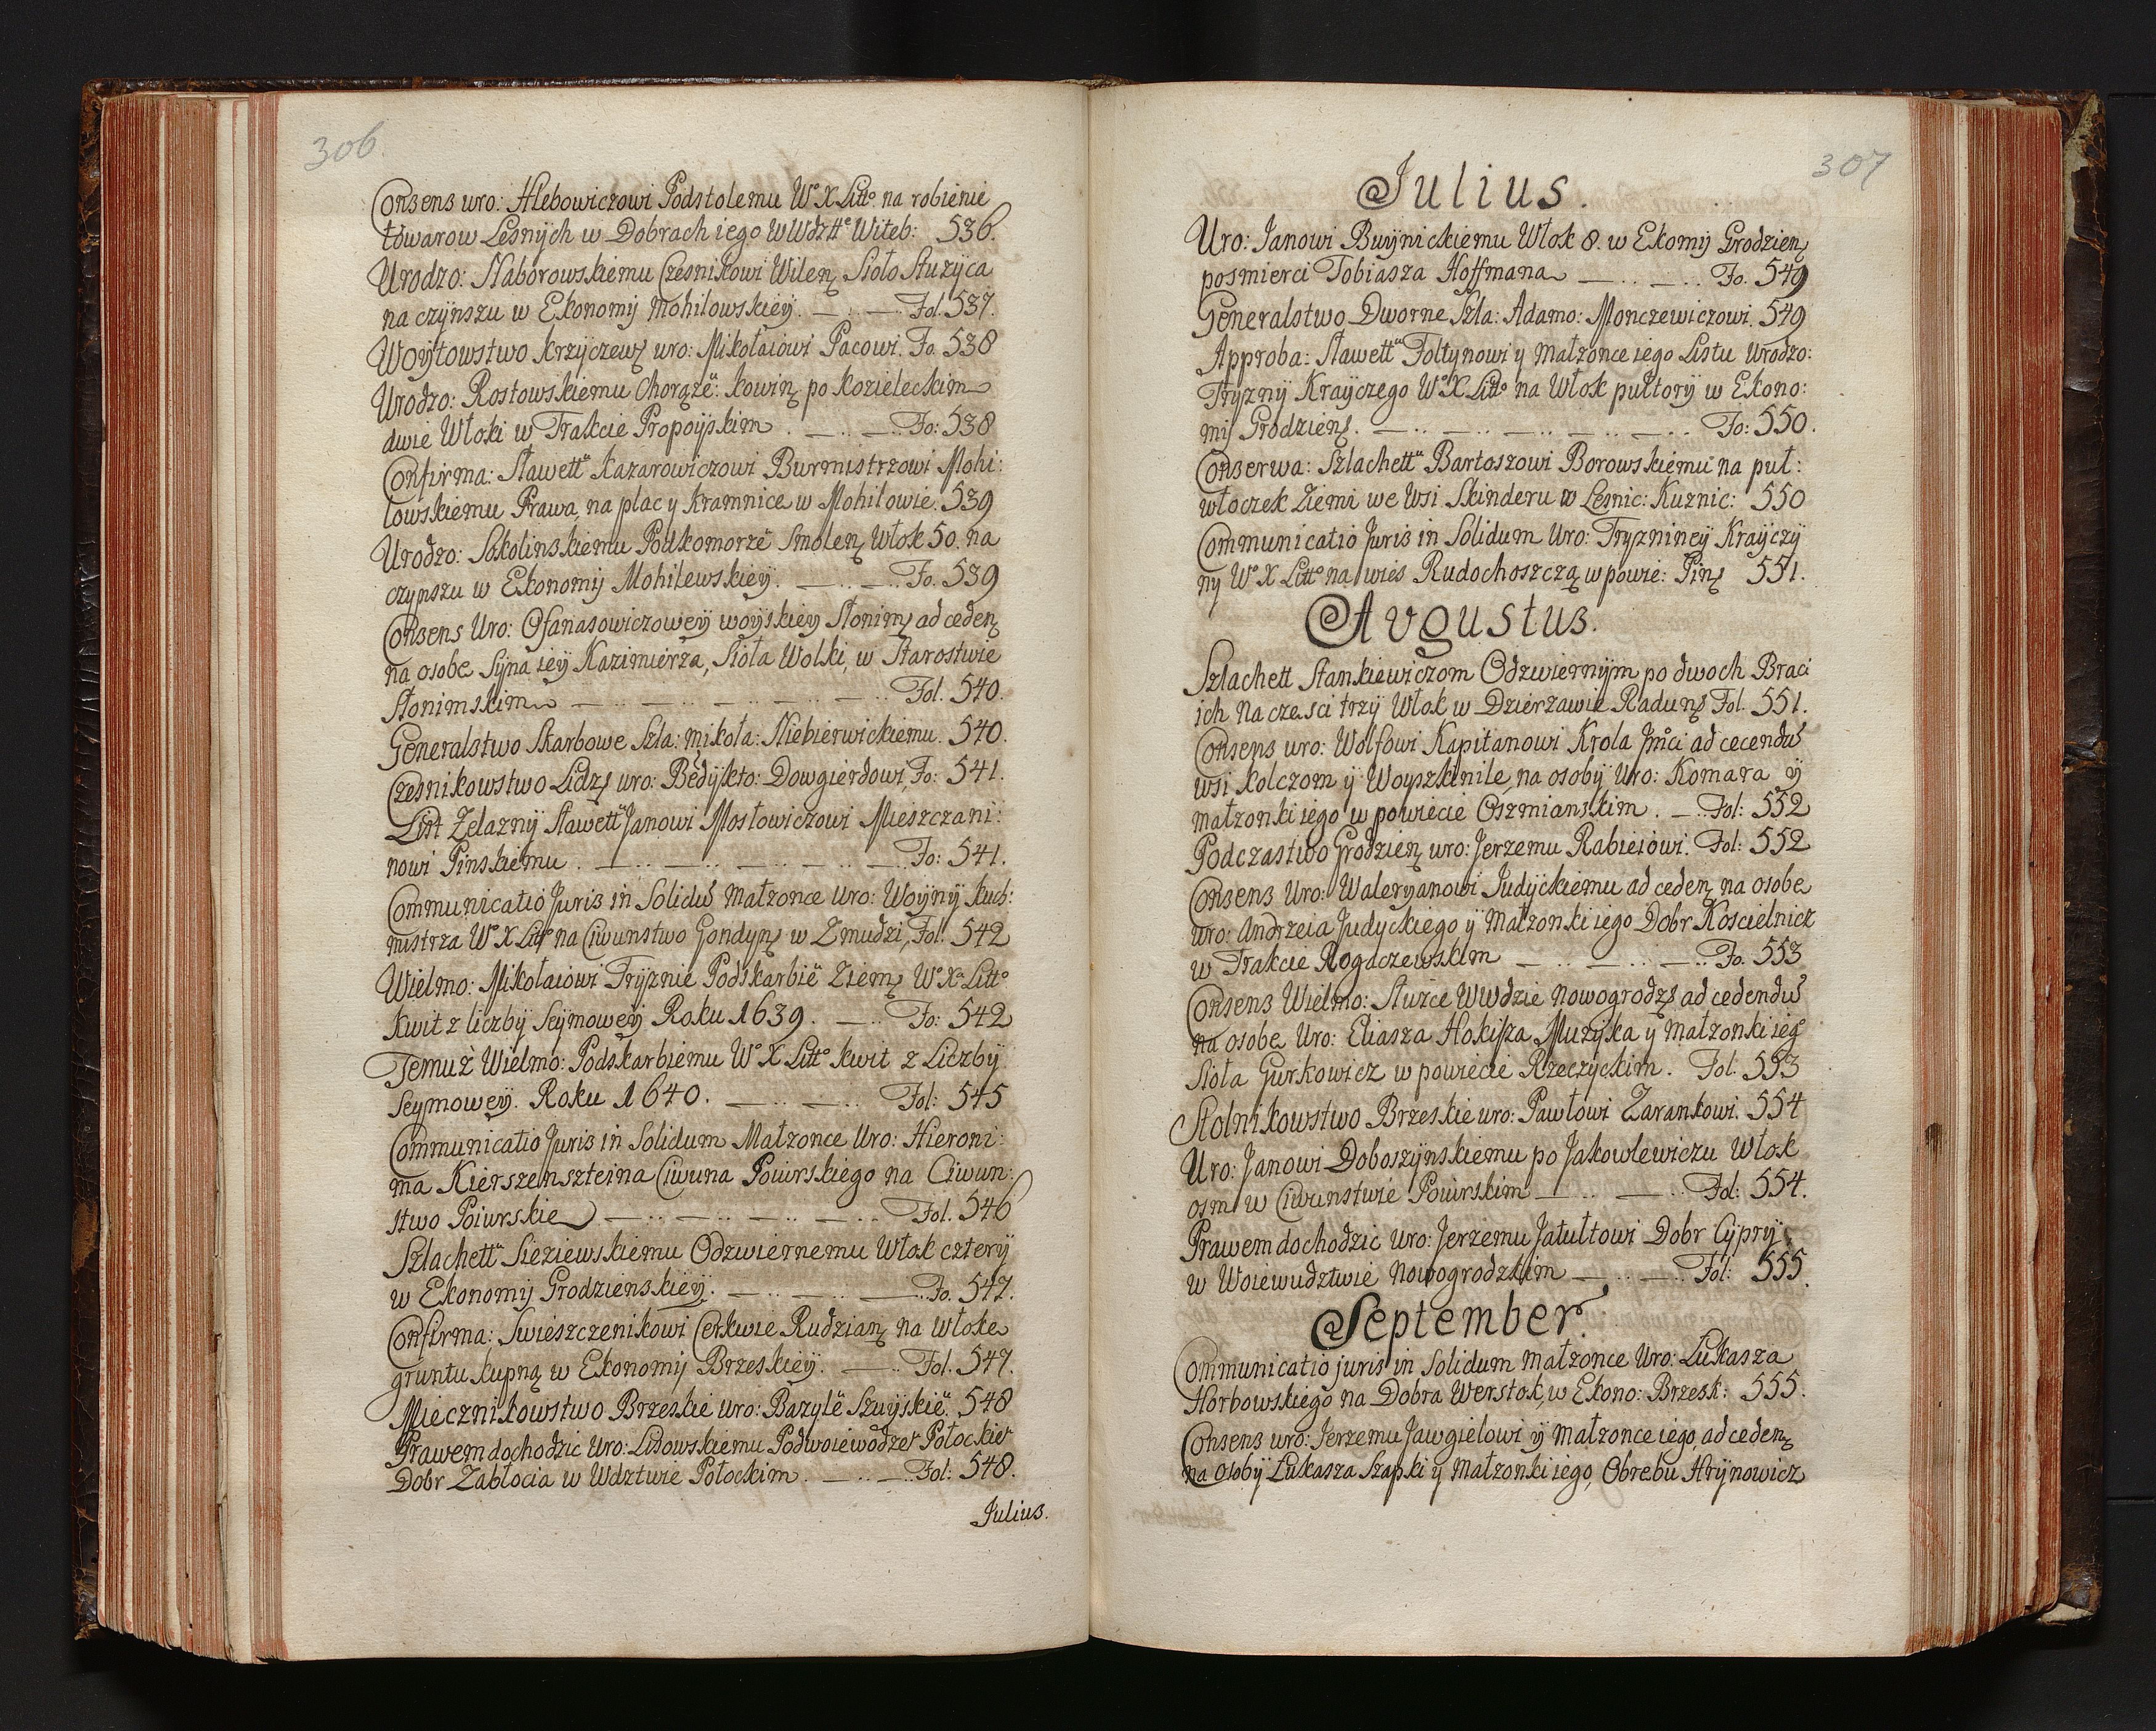 306
Consens uro: Hlebowiczowi Podstolemu Wº X Littº na robienie
towarow Lesnych w Dobrach iego w Wdzttº Witeb: 536.
Urodzo: Naborowskiemu Czesnikowi Wilen Sioło Służyca
na czynszu w Ekonomij Mohilowskiey. Fol. 537.
Woytowstwo Krzyczews uro: Mikołaiowi Pacowi. Fo. 538
Urodzo: Rostowskiemu Chorąże: Kowin po Kozieleckim
dwie Włoki w Trakcie Propoyskim. Fo: 538
Confirma: Sławett Kazarowiczowi Burmistrzowi Mohi:
lowskiemu Prawa, na plac y Kramnice w Mohilowie. 539
Urodzo: Sokolinskiemu Podkomorze Smolen Włok 50. na
czynszu w Ekonomij Mohilewskiey. Fo. 539
Consens Uro: Ofanasowiczowey woyskiey Słonim ad ceden
na osobe Syna iey Kazimierza, Sioła Wolki, w Starostwie
Słonimskim Fol. 540.
Generalstwo Skarbowe Szla: mikoła: Niebierwickiemu. 540.
Czesnikowstwo Lidz uro: Bedykto: Dowgierdowi, Fo: 541.
List Zelazny Sławett Janowi Mostowiczowi Mieszczani:
nowi Pinskiemu. Fo: 541.
Communicatio Juris in Solidu Małzonce Uro: Woyny Kuch:
mistrza Wº X Littº na Ciwunstwo Gondyn w Zmudzi, Fol. 542
Wielmo: Mikołaiowi Tryznie Podskarbie Ziem Wº Xº Littº
Kwit z liczby Seymowey Roku 1639. Fo: 542
Temuż Wielmo: Podskarbiemu Wº X Littº kwit z Liczby
Seymowey. Roku 1640. Fol: 545
Communicatio Juris in Solidum Małzonce Uro: Hieroni:
ma Kierszenszteina Ciwuna Poiurskiego na Ciwun:
stwo Poiurskie Fol. 546
Szlachett Sieziewskiemu Odzwiernemu Włok cztery
w Ekonomij Grodzienskiey. Fo. 547.
Confirma: Swieszczenikowi Cerkwie Rudzian na Włoke
gruntu kupną w Ekonomij Brzeskiey. Fol. 547.
Miecznikowstwo Brzeskie uro: Bazyle Szuyskie. 548
Prawem dochodzic Uro: Lisowskiemu Podwoiewodze Połockie
Dobr Zabłocia w Wdztwie Połockim. Fol: 548.
Julius.
307
Julius.
Uro: Janowi Buynickiemu Włok 8. w Ekomij Grodzien
posmierci Tobiasza Hoffmana Fo. 549
Generalstwo Dworne Szla: Adamo: Monczewiczowi. 549
Approba: Sławett Foltynowi y małzonce iego Listu Urodzo:
Tryzny Krayczego Wº X Littº na Włok pułtory w Ekono:
mij Grodzien. Fo: 550.
Conserwa: Szlachett Bartoszowi Borowskiemu na puł:
włoczek Ziemi we Wsi Skinderu w Lesnic: Kuznic: 550
Communicatio Juris in Solidum Uro: Tryzniney Krayczy
ny Wº X Littº na wies Rudochoszczą w powie: Pin 551.
Avgustus.
Szlachett Stankiewiczom Odzwiernym po dwoch Braci
ich na czesci trzy Włok w Dzierzawie Radun Fol. 551.
Consens uro: Wolfowi Kapitanowi Krola Jmci ad cecendu
wsi Kolczom y Woyszkinile, na osoby Uro: Komara y
małzonki iego w powiecie Oszmianskim. Fol: 552
Podczastwo Grodzien uro: Jerzemu Rabieiowi. Fol: 552
Consens Uro: Waleryanowi Judyckiemu ad ceden na osobe
uro: Andrzeia Judyckiego y Małzonki iego Dobr Koscielnicz
w Trakcie Rogaczewskim Fo. 553
Consens Wielmo: Służce Wwdzie Nowogrodz ad cedendu
na osobe Uro: Eliasza Hokisza Muzyka y małzonki ieg
Sioła Gurkowicz w powiecie Rzeczyckim. Fol. 553
Stolnikowstwo Brzeskie uro: Pawłowi Zarankowi. 554
Uro: Janowi Doboszynskiemu po Jakowlewiczu Włok
osm w Ciwunstwie Poiurskim Fol: 554.
Prawem dochodzic Uro: Jerzemu Jatułtowi Dobr Cypry
w Woiewudztwie Nowogrodzkim Fol: 555.
September.
Communicatio juris in Solidum małzonce Uro: Łukasza
Horbowskiego na Dobra Werstok, w Ekono: Brzesk: 555.
Consens uro: Jerzemu Jawgielowi y Małzonce iego, ad ceden
na osoby Łukasza Szapki y Małzonki iego, Obrebu Hrynowicz